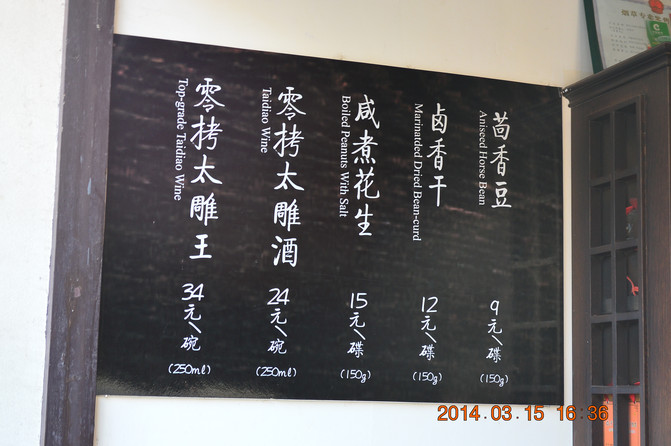 茴香豆
Aniseed Horse Bean
9元/碟
(150g)
卤香干
Marinatded Dried Bean-curd
12元/碟
(150g)
咸煮花生
Boiled Peanuts With Salt
15元/碟
(150g)
零拷太雕酒
Taidiao Wine
24元/碗
(250ml)
零拷太雕王
Top-grade Taidiao Wine
34元/碗
(250ml)
2014.03.15 16:36